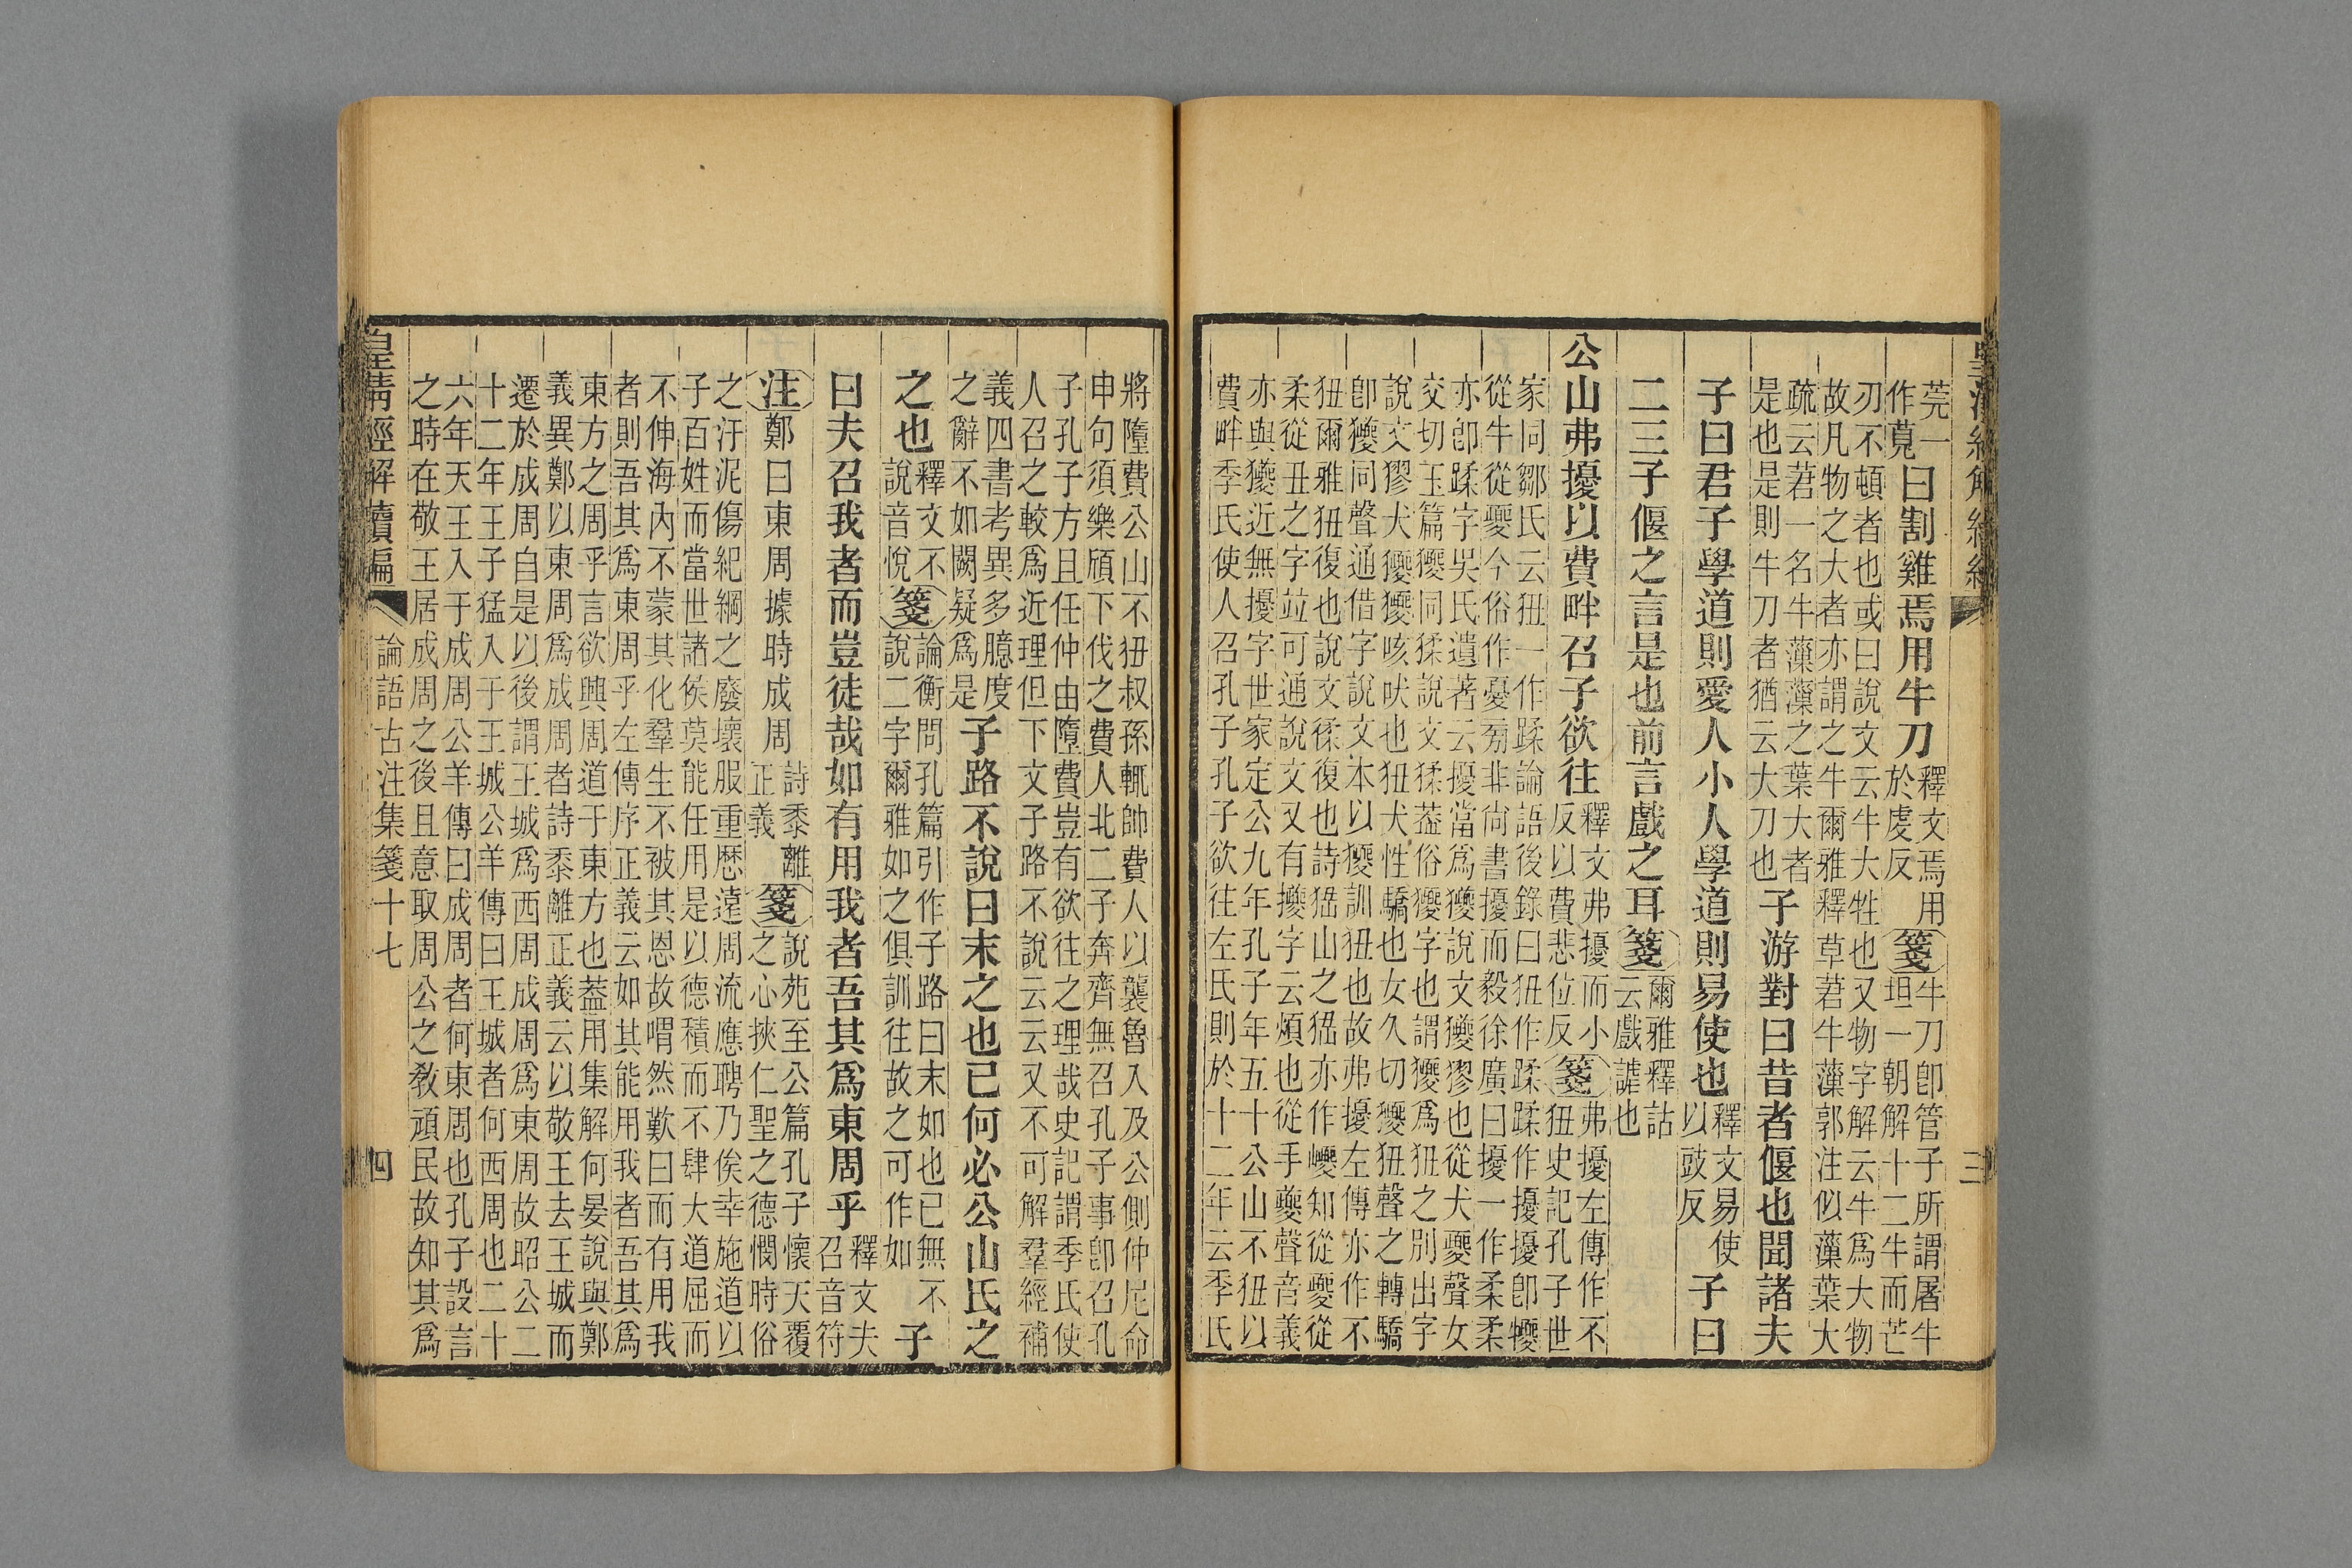 皇清經解續編　三
莞一
作莧
曰割雞焉用牛刀
釋文焉用
於虔反
箋
牛刀卽管子所謂屠牛
坦一朝解十二牛而芒
刃不頓者也或曰說文云牛大牲也又物字解云牛爲大物
故凡物之大者亦謂之牛爾雅釋草莙牛薻郭注似薻葉大
疏云莙一名牛薻薻之葉大者
是也是則牛刀者猶云大刀也
子游對曰昔者偃也聞諸夫
子曰君子學道則愛人小人學道則易使也
釋文易使
以豉反
子曰
二三子偃之言是也前言戲之耳
箋
爾雅釋詁
云戲謔也
公山弗擾以費畔召子欲往
釋文弗擾而小
反以費悲位反
箋
弗擾左傳作不
狃史記孔子世
家同鄒氏云狃一作蹂論語後錄曰狃作蹂蹂作擾擾卽㹛
從牛從夒今俗作憂㫄非尚書擾而毅徐廣曰擾一作柔柔
亦卽蹂字吳氏遺著云擾當爲獿說文獿㺒也從犬夒聲女
交切玉篇獿同猱說文猱葢俗獿字也謂獿爲狃之別出字
說文㺒犬獿獿咳吠也狃犬性驕也女久切獿狃聲之轉驕
卽獿同聲通借字說文本以獿訓狃也故弗擾左傳亦作不
狃爾雅狃復也說文㣠復也詩山之亦作巙知從夒從
柔從丑之字竝可通說文又有㩭字云煩也從手夒聲音義
亦與獿近無擾字世家定公九年孔子年五十公山不狃以
費畔季氏使人召孔子孔子欲往左氏則於十二年云季氏
將墮費公山不狃叔孫輒帥費人以襲魯入及公側仲尼命
申句須樂頎下伐之費人北二子奔齊無召孔子事卽召孔
子孔子方且任仲由墮費豈有欲往之理哉史記謂季氏使
人召之較爲近理但下文子路不說云云又不可解羣經補
義四書考異多臆度
之辭不如闕疑爲是
子路不說曰末之也已何必公山氏之
之也
釋文不
說音悅
箋
論衡問孔篇引作子路曰末如也已無不
說二字爾雅如之俱訓往故之可作如
子
曰夫召我者而豈徒哉如有用我者吾其爲東周乎
釋文夫
召音符
注
鄭曰東周據時成周
詩黍離
正義
箋
說苑至公篇孔子懷天覆
之心挾仁聖之德憫時俗
之汙泥傷紀綱之廢壞服重歷遠周流應聘乃俟幸施道以
子百姓而當世諸侯莫能任用是以德積而不肆大道屈而
不伸海內不蒙其化羣生不被其恩故喟然歎曰而有用我
者則吾其爲東周乎左傳序正義云如其能用我者吾其爲
東方之周乎言欲興周道于東方也葢用集解何晏說與鄭
義異鄭以東周爲成周者詩黍離正義云以敬王去王城而
遷於成周自是以後謂王城爲西周成周爲東周故昭公二
十二年王子猛入于王城公羊傳曰王城者何西周也二十
六年天王入于成周公羊傳曰成周者何東周也孔子設言
之時在敬王居成周之後且意取周公之敎頑民故知其爲
皇清經解續編　論語古注集箋十七　四